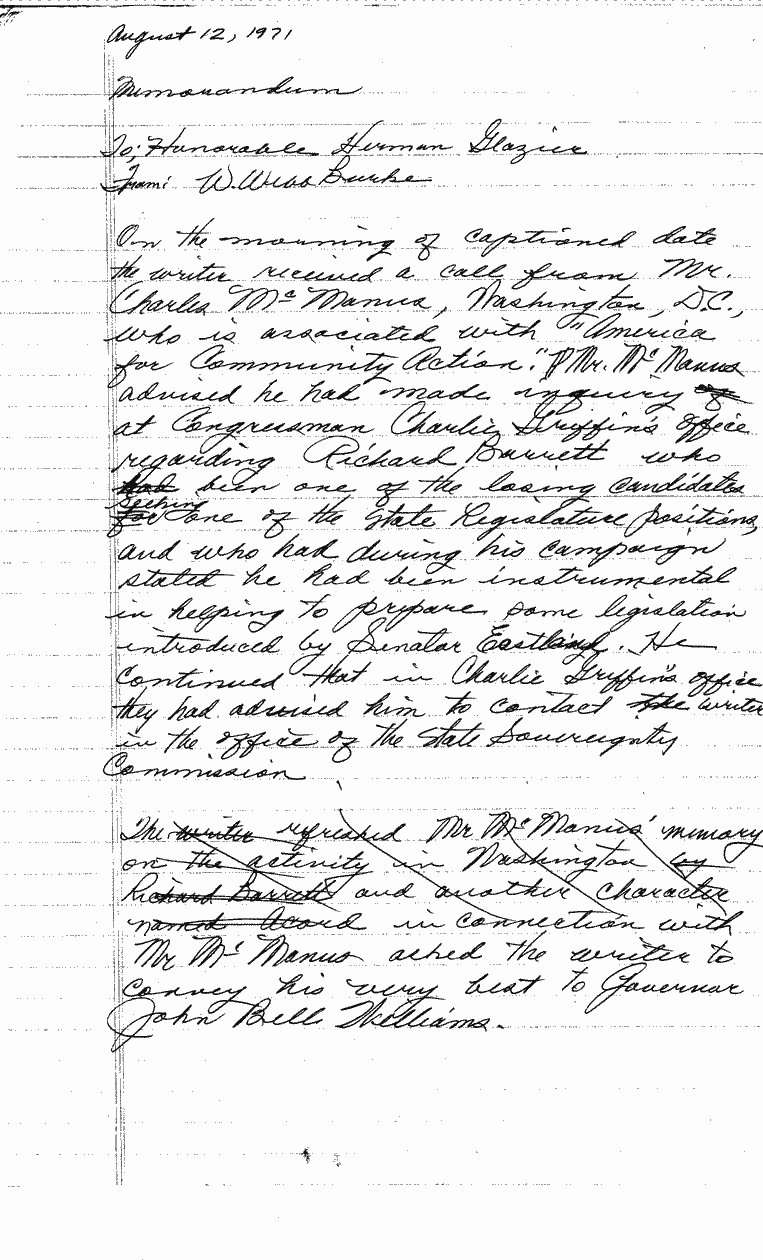 August 12, 1971
Memorandum
To: Honorable Herman Glazier
From: W. Webb Burke
On the morning of captioned date
the writer received a call from Mr.
Charles McManus, Washington, D.C.,
who is associated with "America
for Community Action." ¶ Mr. McManus
advised he had made inquiry of
at Congressman Charlie Griffin's office
regarding Richard Barrett who
had been one of the losing candidates
seeking
for one of the State Legislature positions,
and who had during his campaign
stated he had been instrumental
in helping to prepare some legislation
introduced by Senator Eastland. He
continued that in Charlie Griffin's office
they had advised him to contact the writer
in the office of the State Sovereignty
Commission
The writer refreshed Mr McManus' memory
on the activity in Washington by
Richard Barrett and another character
named Acord in connection with
Mr McManus asked the writer to
convey his very best to Governor
John Bell Williams.